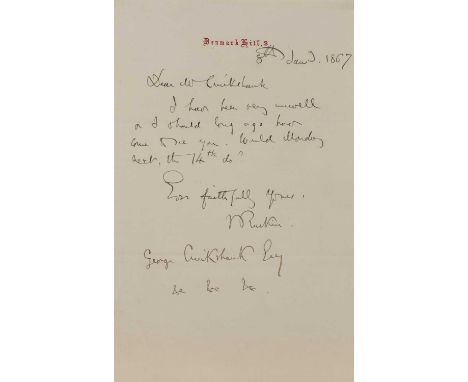 Denmark Hill, S.
8th Jan. 1867
Dear Mr Cruikshank
I have been very unwell
or I should long ago have
come to see you. Would Monday
next, the 14th do?
Ever faithfully Yours.
J Ruskin.
George Cruikshank Esq
&c &c &c